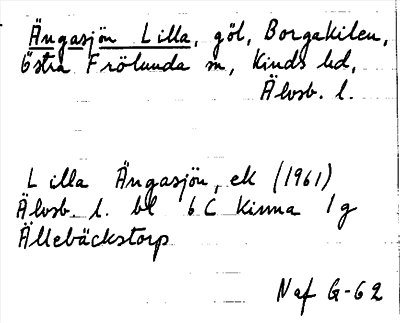 Ängasjön Lilla, göl, Borgakilen,
Östra Frölunda sn, Kinds hd,
Älvsb. l.
Lilla Ängasjön, ek (1961)
Älvsb. l. bl 6C Kinna 1g
Ällebäckstorp
Naf G-62